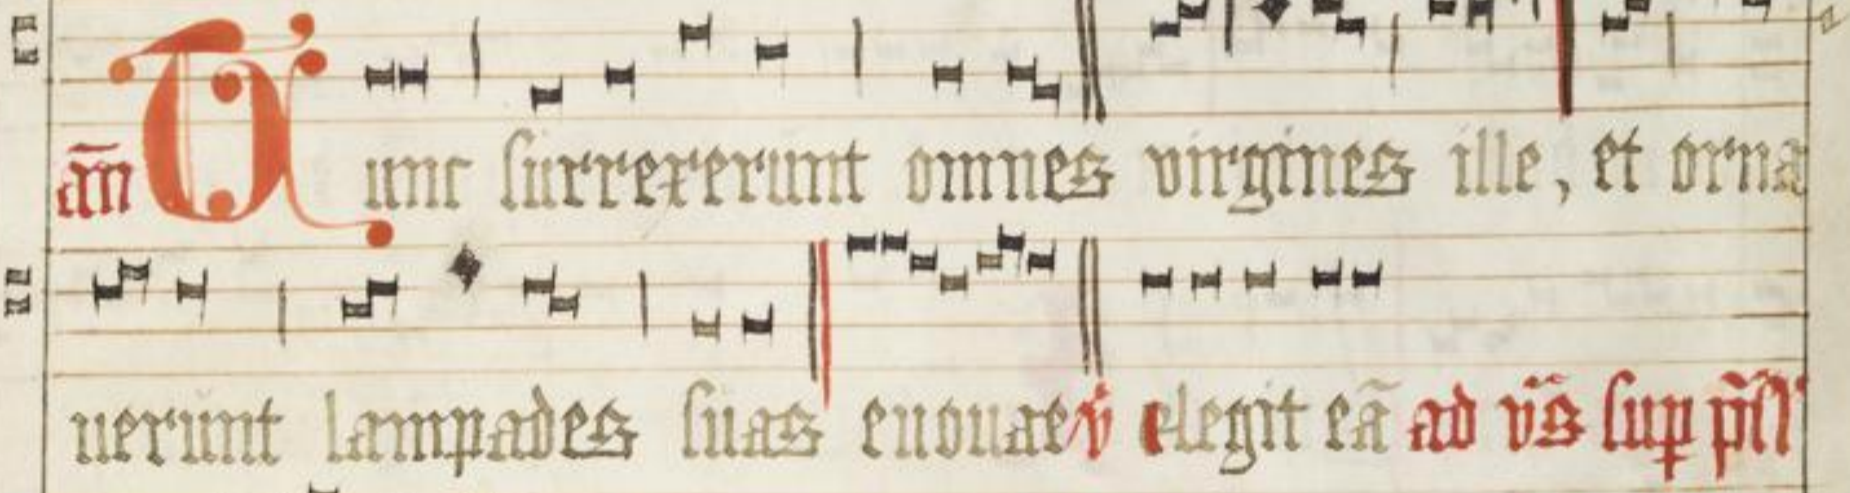 am̄ Tunc surrexerunt omnes virgines ille, et orna
uerunt lampades suas euouae v̄ elegit eā ad vs̄ sup ps̄ll